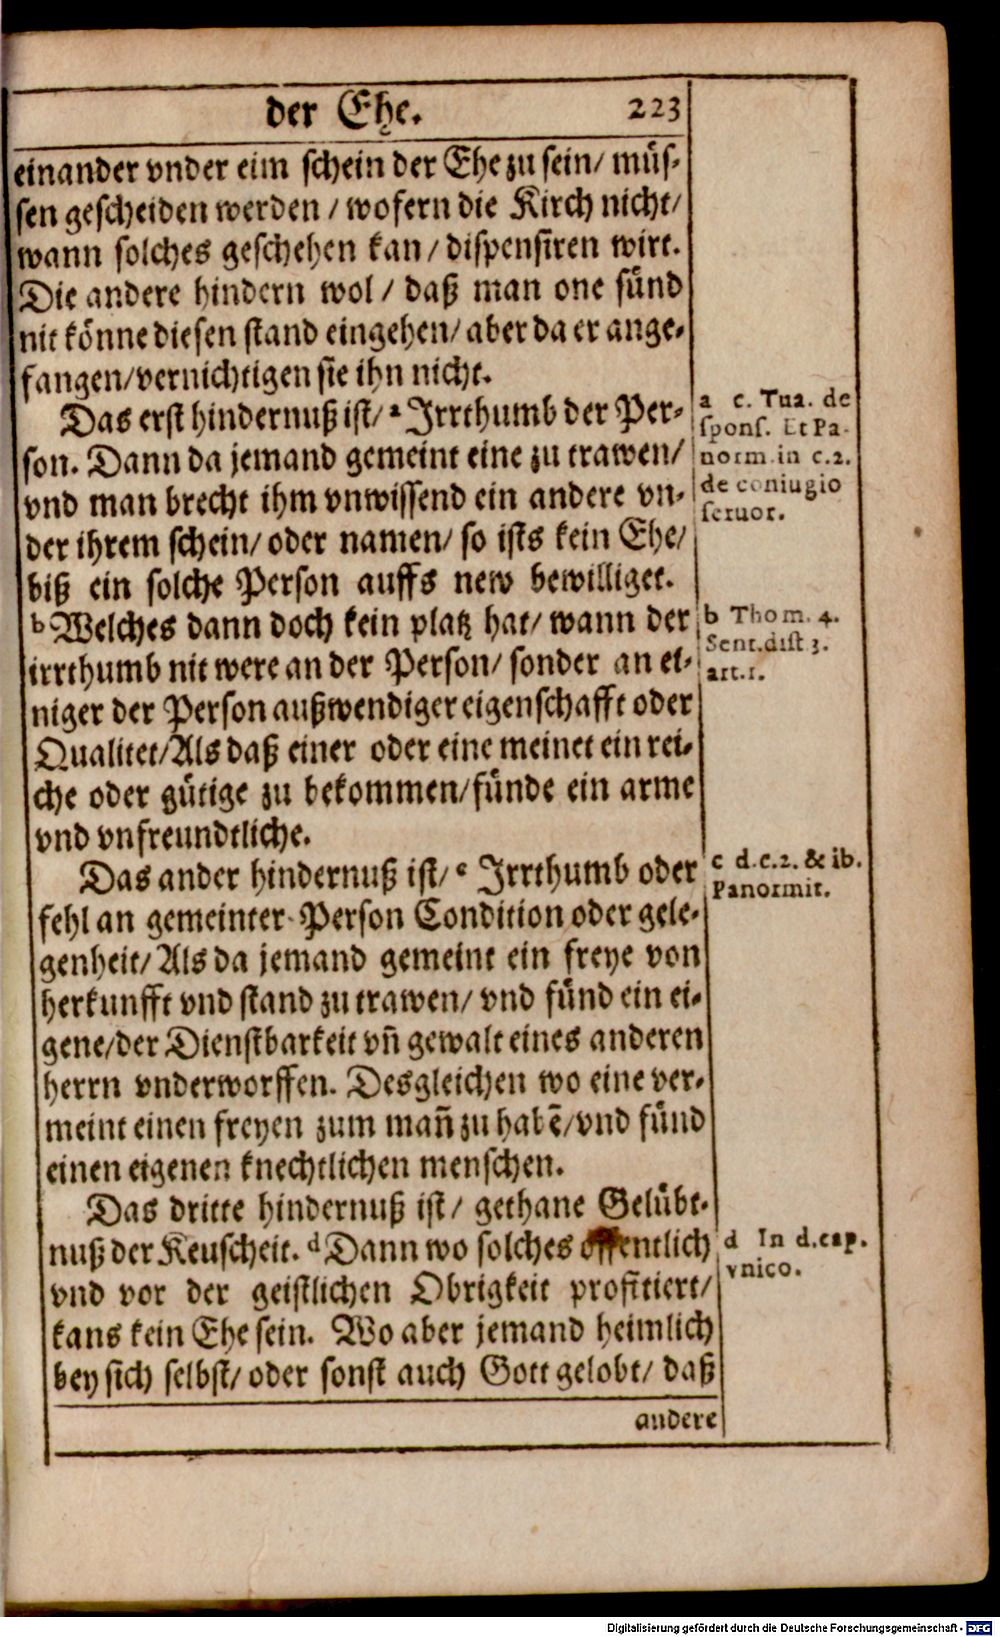 der Ehe. 223
einander vnder eim schein der Ehe zu sein/ müs-
sen gescheiden werden / wofern die Kirch nicht/
wann solches geschehen kan / dispensiren wirt.
Die andere hindern wol / daß man one sünd
nit könne diesen stand eingehen/ aber da er ange-
fangen/ vernichtigen sie ihn nicht.
Das erst hindernuß ist/ a Irrthumb der Per-
son. Dann da jemand gemeint eine zu trawen/
vnd man brecht ihm vnwissend ein andere vn-
der ihrem schein/ oder namen/ so ists kein Ehe/
biß ein solche Person auffs new bewilliget.
b Welches dann doch kein platz hat/ wann der
irrthumb nit were an der Person/ sonder an ei-
niger der Person außwendiger eigenschafft oder
Qualitet/ Als daß einer oder eine meinet ein rei-
che oder gütige zu bekommen/ fünde ein arme
vnd vnfreundtliche.
Das ander hindernuß ist/ c Irrthumb oder
fehl an gemeinter Person Condition oder gele-
genheit/ Als da jemand gemeint ein freye von
herkunfft vnd stand zu trawen/ vnd fünd ein ei-
gene/ der Dienstbarkeit vñ gewalt eines anderen
herrn vnderworffen. Desgleichen wo eine ver-
meint einen freyen zum mañ zu habē/ vnd fünd
einen eigenen knechtlichen menschen.
Das dritte hindernuß ist/ gethane Gelübt-
nuß der Keuscheit. d Dann wo solches öffentlich
vnd vor der geistlichen Obrigkeit profitiert/
kans kein Ehe sein. Wo aber jemand heimlich
bey sich selbst/ oder sonst auch Gott gelobt/ daß
andere
a c. Tua. de
spons. Et Pa-
norm. in c. 2.
de coniugio
seruor.
b Thom. 4.
Sent. dist 3.
art. 1.
c d. c. 2. & ib.
Panormit.
d In d. cap.
vnico.
Digitalisierung gefördert durch die Deutsche Forschungsgemeinschaft - DFG